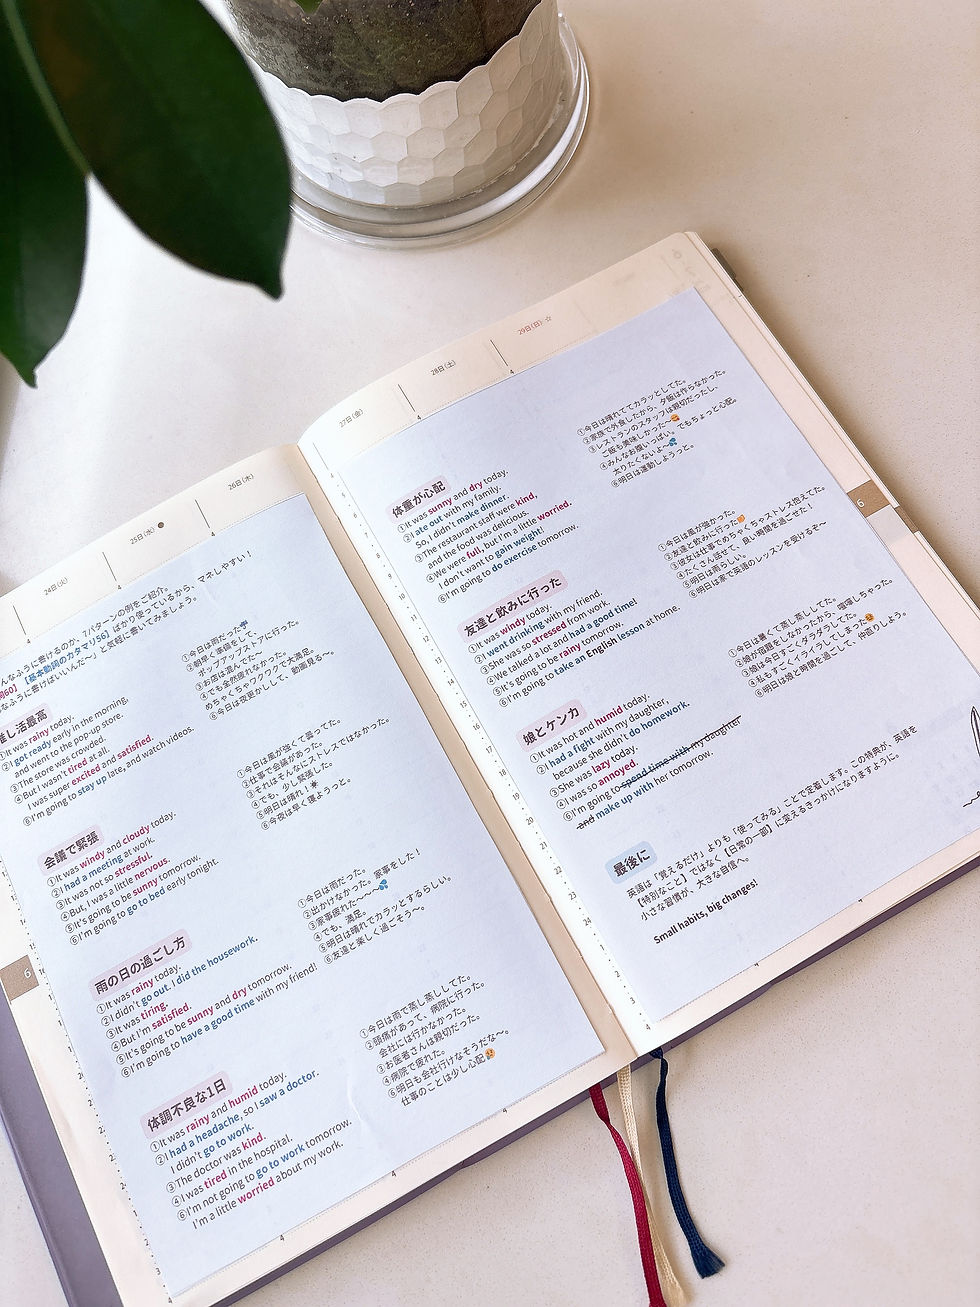 24日(火)
25日(水)
26日(木)
んなふうに書けるのか、7パターンの例をご紹介。
詞60】【基本動詞のカタマリ56】ばかり使っているから、マネしやすい！
なふうに書けばいいんだ〜」と気軽に書いてみましょう。
推し活最高
①It was rainy today.
②I got ready early in the morning,
and went to the pop-up store.
③The store was crowded.
④But I wasn't tired at all.
I was super excited and satisfied.
⑥I'm going to stay up late, and watch videos.
①今日は雨だった☔
②朝早く準備をして、
ポップアップストアに行った。
③お店は混んでた〜
④でも全然疲れなかった。
めちゃくちゃワクワクで大満足。
⑥今日は夜更かしして、動画見る〜。
会議で緊張
①It was windy and cloudy today.
②I had a meeting at work.
③It was not so stressful.
④But, I was a little nervous.
⑤It's going to be sunny tomorrow.
⑥I'm going to go to bed early tonight.
①今日は風が強くて曇ってた。
②仕事で会議があった。
③それはそんなにストレスではなかった。
④でも、少し緊張した。
⑤明日は晴れ！☀
⑥今夜は早く寝ようっと。
雨の日の過ごし方
①It was rainy today.
②I didn't go out. I did the housework.
③It was tiring.
④But I'm satisfied.
⑤It's going to be sunny and dry tomorrow.
⑥I'm going to have a good time with my friend!
①今日は雨だった。
②出かけなかった。家事をした！
③家事疲れた〜〜〜💦
④でも、満足。
⑤明日は晴れてカラッとするらしい。
⑥友達と楽しく過ごそう〜。
体調不良な1日
①It was rainy and humid today.
②I had a headache, so I saw a doctor.
I didn't go to work.
③The doctor was kind.
④I was tired in the hospital.
⑥I'm not going to go to work tomorrow.
I'm a little worried about my work.
①今日は雨で蒸し蒸ししてた。
②頭痛があって、病院に行った。
会社には行かなかった。
③お医者さんは親切だった。
④病院で疲れた。
⑥明日も会社行けなそうだな〜。
仕事のことは少し心配😥
6
27日(金)
28日(土)
29日(日)☆
体重が心配
①It was sunny and dry today.
②I ate out with my family.
So, I didn't make dinner.
③The restaurant staff were kind,
and the food was delicious.
④We were full, but I'm a little worried.
I don't want to gain weight!
⑥I'm going to do exercise tomorrow.
①今日は晴れててカラッとしてた。
②家族で外食したから、夕飯は作らなかった。
③レストランのスタッフは親切だったし、
ご飯も美味しかった〜😋
④みんなお腹いっぱい。でもちょっと心配。
太りたくないよ〜💦
⑥明日は運動しようっと。
友達と飲みに行った
①It was windy today.
②I went drinking with my friend.
③She was so stressed from work.
④We talked a lot and had a good time!
⑤It's going to be rainy tomorrow.
⑥I'm going to take an English lesson at home.
①今日は風が強かった。
②友達と飲みに行った🍺
③彼女は仕事でめちゃくちゃストレス抱えてた。
④たくさん話せて、良い時間を過ごせた！
⑤明日は雨らしい。
⑥明日は家で英語のレッスンを受けるぞ〜
娘とケンカ
①It was hot and humid today.
②I had a fight with my daughter,
because she didn't do homework.
③She was lazy today.
④I was so annoyed.
⑥I'm going to spend time with my daughter
and make up with her tomorrow.
①今日は暑くて蒸し蒸ししてた。
②娘が宿題をしなかったから、喧嘩しちゃった。
③娘は今日すごくダラダラしてた。
④私もすごくイライラしてしまった😠
⑥明日は娘と時間を過ごして、仲直りしよう。
最後に
英語は「覚えるだけ」よりも「使ってみる」ことで定着します。この特典が、英語を
【特別なこと】ではなく【日常の一部】に変えるきっかけになりますように。
小さな習慣が、大きな自信へ。
Small habits, big changes!
6